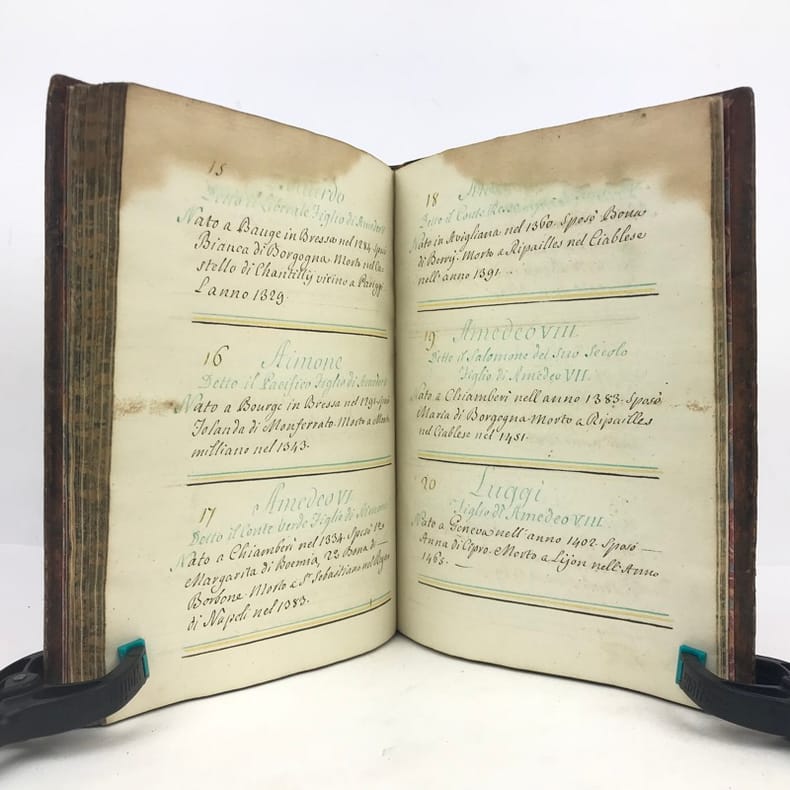 15
Detto il Liberale Figlio di Amedeo V
Nato a Bauge in Bressa nel 1284. Sposò
Bianca di Borgogna. Morto nel Ca-
stello di Chantillÿ vicino a Pariggi
L'anno 1329.
16 Aimone
Detto il Pacifico Figlio di Amedeo
Nato a Bourge in Bressa nel 1291. Sposò
Iolanda di Monferrato. Morto a Mont
milliano nel 1343.
17 Amedeo VI
Detto il Conte Verde Figlio di Aimone
Nato a Chiamberì nel 1334. Sposò
Margarita di Boemia, 2a Bona di
Borbone. Morto a St. Sebastiano nel Regno
di Napoli nel 1383.
18
Detto il Conte
Nato in Avigliana nel 1360. Sposò Bona
di Berrÿ. Morto a Ripailles nel Ciablese
nell'anno 1391.
19 Amedeo VIII.
Ditto il Salomone del suo Secolo
Figlio di Amedeo VII.
Nato a Chiamberì nel anno 1383. Sposò
Maria di Borgogna. Morto a Ripailles
nel Ciablese nel 1451.
20 Luggi
Figlio di Amedeo VIII.
Nato a Geneva nell'anno 1402. Sposò —
Anna di Cipro. Morto a Lijon nell'Anno
1465. —